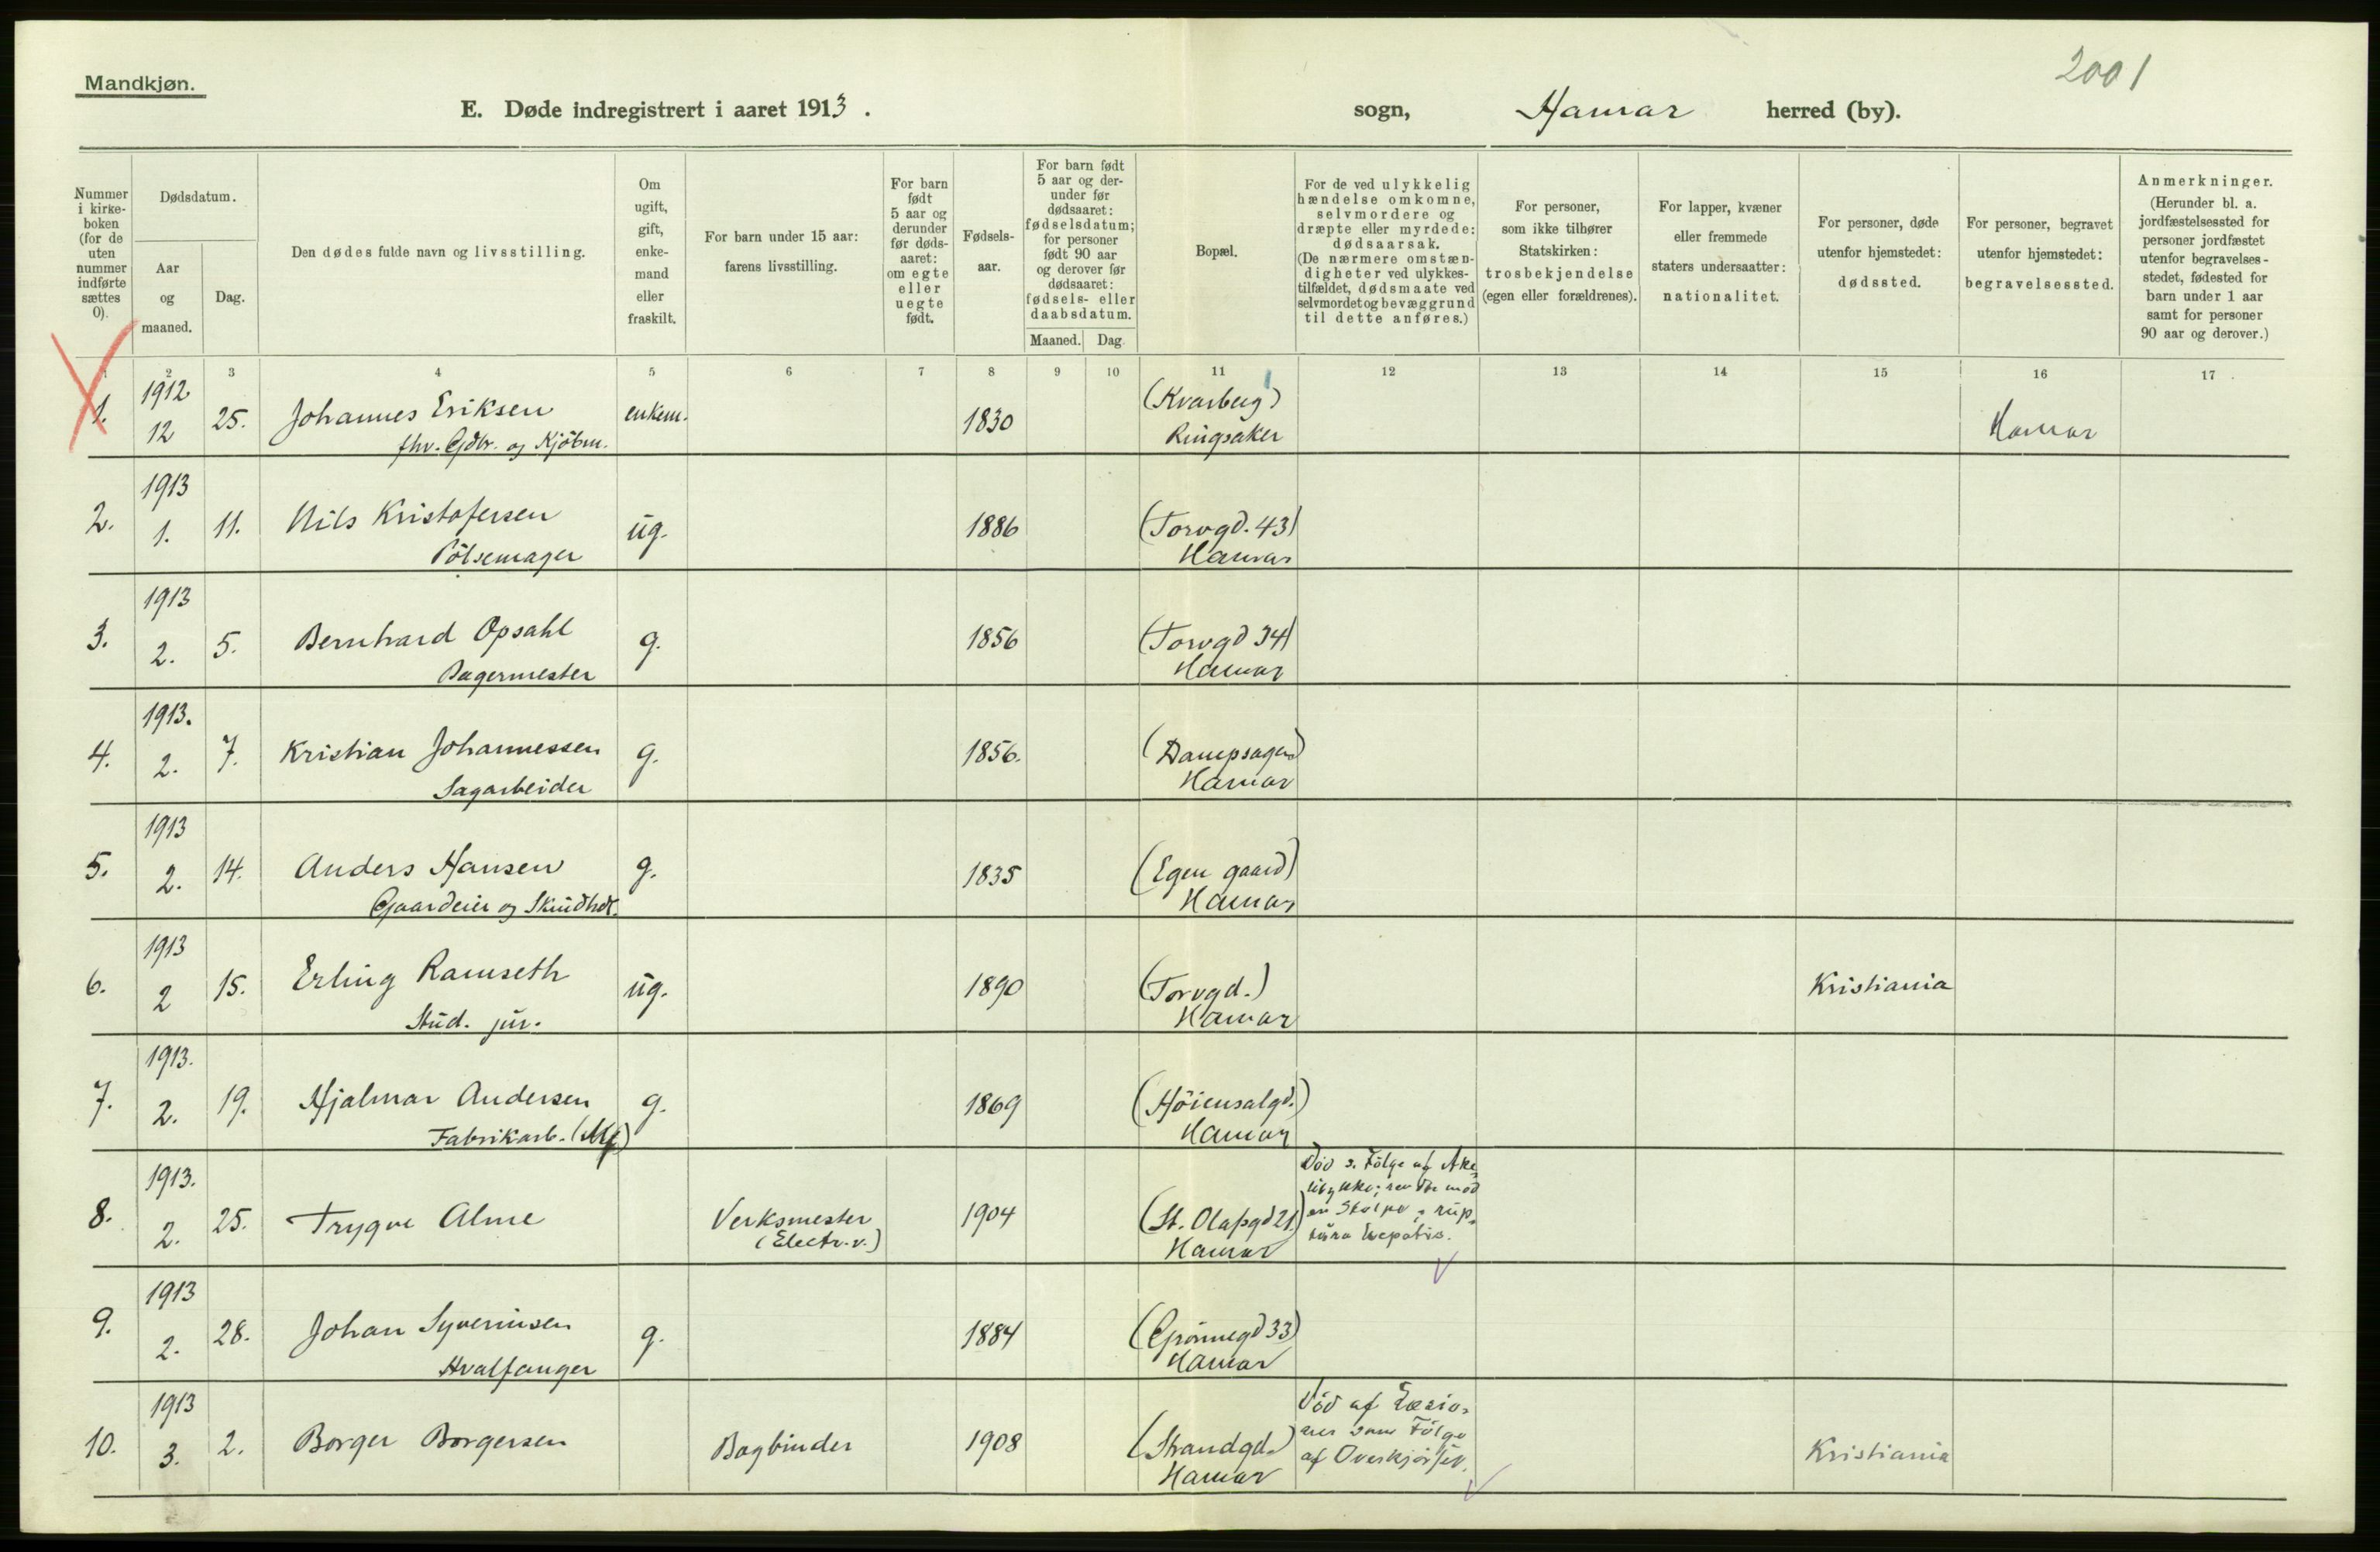 2001
Mandkjøn.
E. Døde indregistrert i aaret 1913. sogn, Hamar herred (by).
Nummer i kirke-boken (for de uten nummer indførte sættes 0).
Dødsdatum.
Aar og maaned.
Dag.
Den dødes fulde navn og livsstilling.
Om ugift, gift, enke-mand eller fraskilt.
For barn under 15 aar: farens livsstilling.
For barn født 5 aar og derunder før døds-aaret: om egte eller uegte født.
Fødsels-aar.
For barn født 5 aar og der-under før dødsaaret: fødselsdatum; for personer født 90 aar og derover før dødsaaret: fødsels- eller daabsdatum.
Maaned. Dag.
Bopæl.
For de ved ulykkelig hændelse omkomne, selvmordere og dræpte eller myrdede: dødsaarsak. (De nærmere omstæn-digheter ved ulykkes-tilfældet, dødsmaate ved selvmordet og bevæggrund til dette anføres.)
For personer, som ikke tilhører Statskirken: trosbekjendelse (egen eller forældrenes).
For lapper, kvæner eller fremmede staters undersaatter: nationalitet.
For personer, døde utenfor hjemstedet: dødssted.
For personer, begravet utenfor hjemstedet: begravelsessted.
Anmerkninger. (Herunder bl. a. jordfæstelsessted for personer jordfæstet utenfor begravelses-stedet, fødested for barn under 1 aar samt for personer 90 aar og derover.)
1 2 3 4 5 6 7 8 9 10 11 12 13 14 15 16 17
1. 1912 12 25. Johannes Eriksen enkem. 1830 (Kvarberg) Hamar
fhv. Gdbr. og Kjöbm. Ringsaker
2. 1913 1. 11. Nils Kristofersen ug. 1886 (Torvgd. 43)
Pölsemager Hamar
3. 1913 2. 5. Bernhard Opsahl g. 1856 (Torvgd 34)
Bagermester Hamar
4. 1913. 2. 7. Kristian Johannessen g. 1856. (Dampsagen)
Sagarbeider Hamar
5. 1913 2. 14. Anders Hansen g. 1835 (Egen gaard)
Gaardeier og Skindhdl. Hamar
6. 1913 2 15. Erling Ramseth ug. 1890 (Torvgd.) Kristiania
Stud. jur. Hamar
7. 1913. 2. 19. Hjalmar Andersen g. 1869 (Höiensalgd.)
Fabrikarb. Hamar
8. 1913. 2. 25. Trygve Alme Verksmester 1904 (St. Olafsgd 21)
(Electr. v.) Hamar
Död s. Fölge af Ake-
ulykke; mod
en Stolpe; rup-
tura hepatis.
9. 1913 2. 28. Johan Syverinsen g. 1884 (Grönnegd 33)
Hvalfanger Hamar
10. 1913 3. 2. Borger Borgersen Bogbinder 1908 (Strandgd.) Kristiania
Hamar
Död af Læsio-
ner som Fölge
af Overkjörsel.